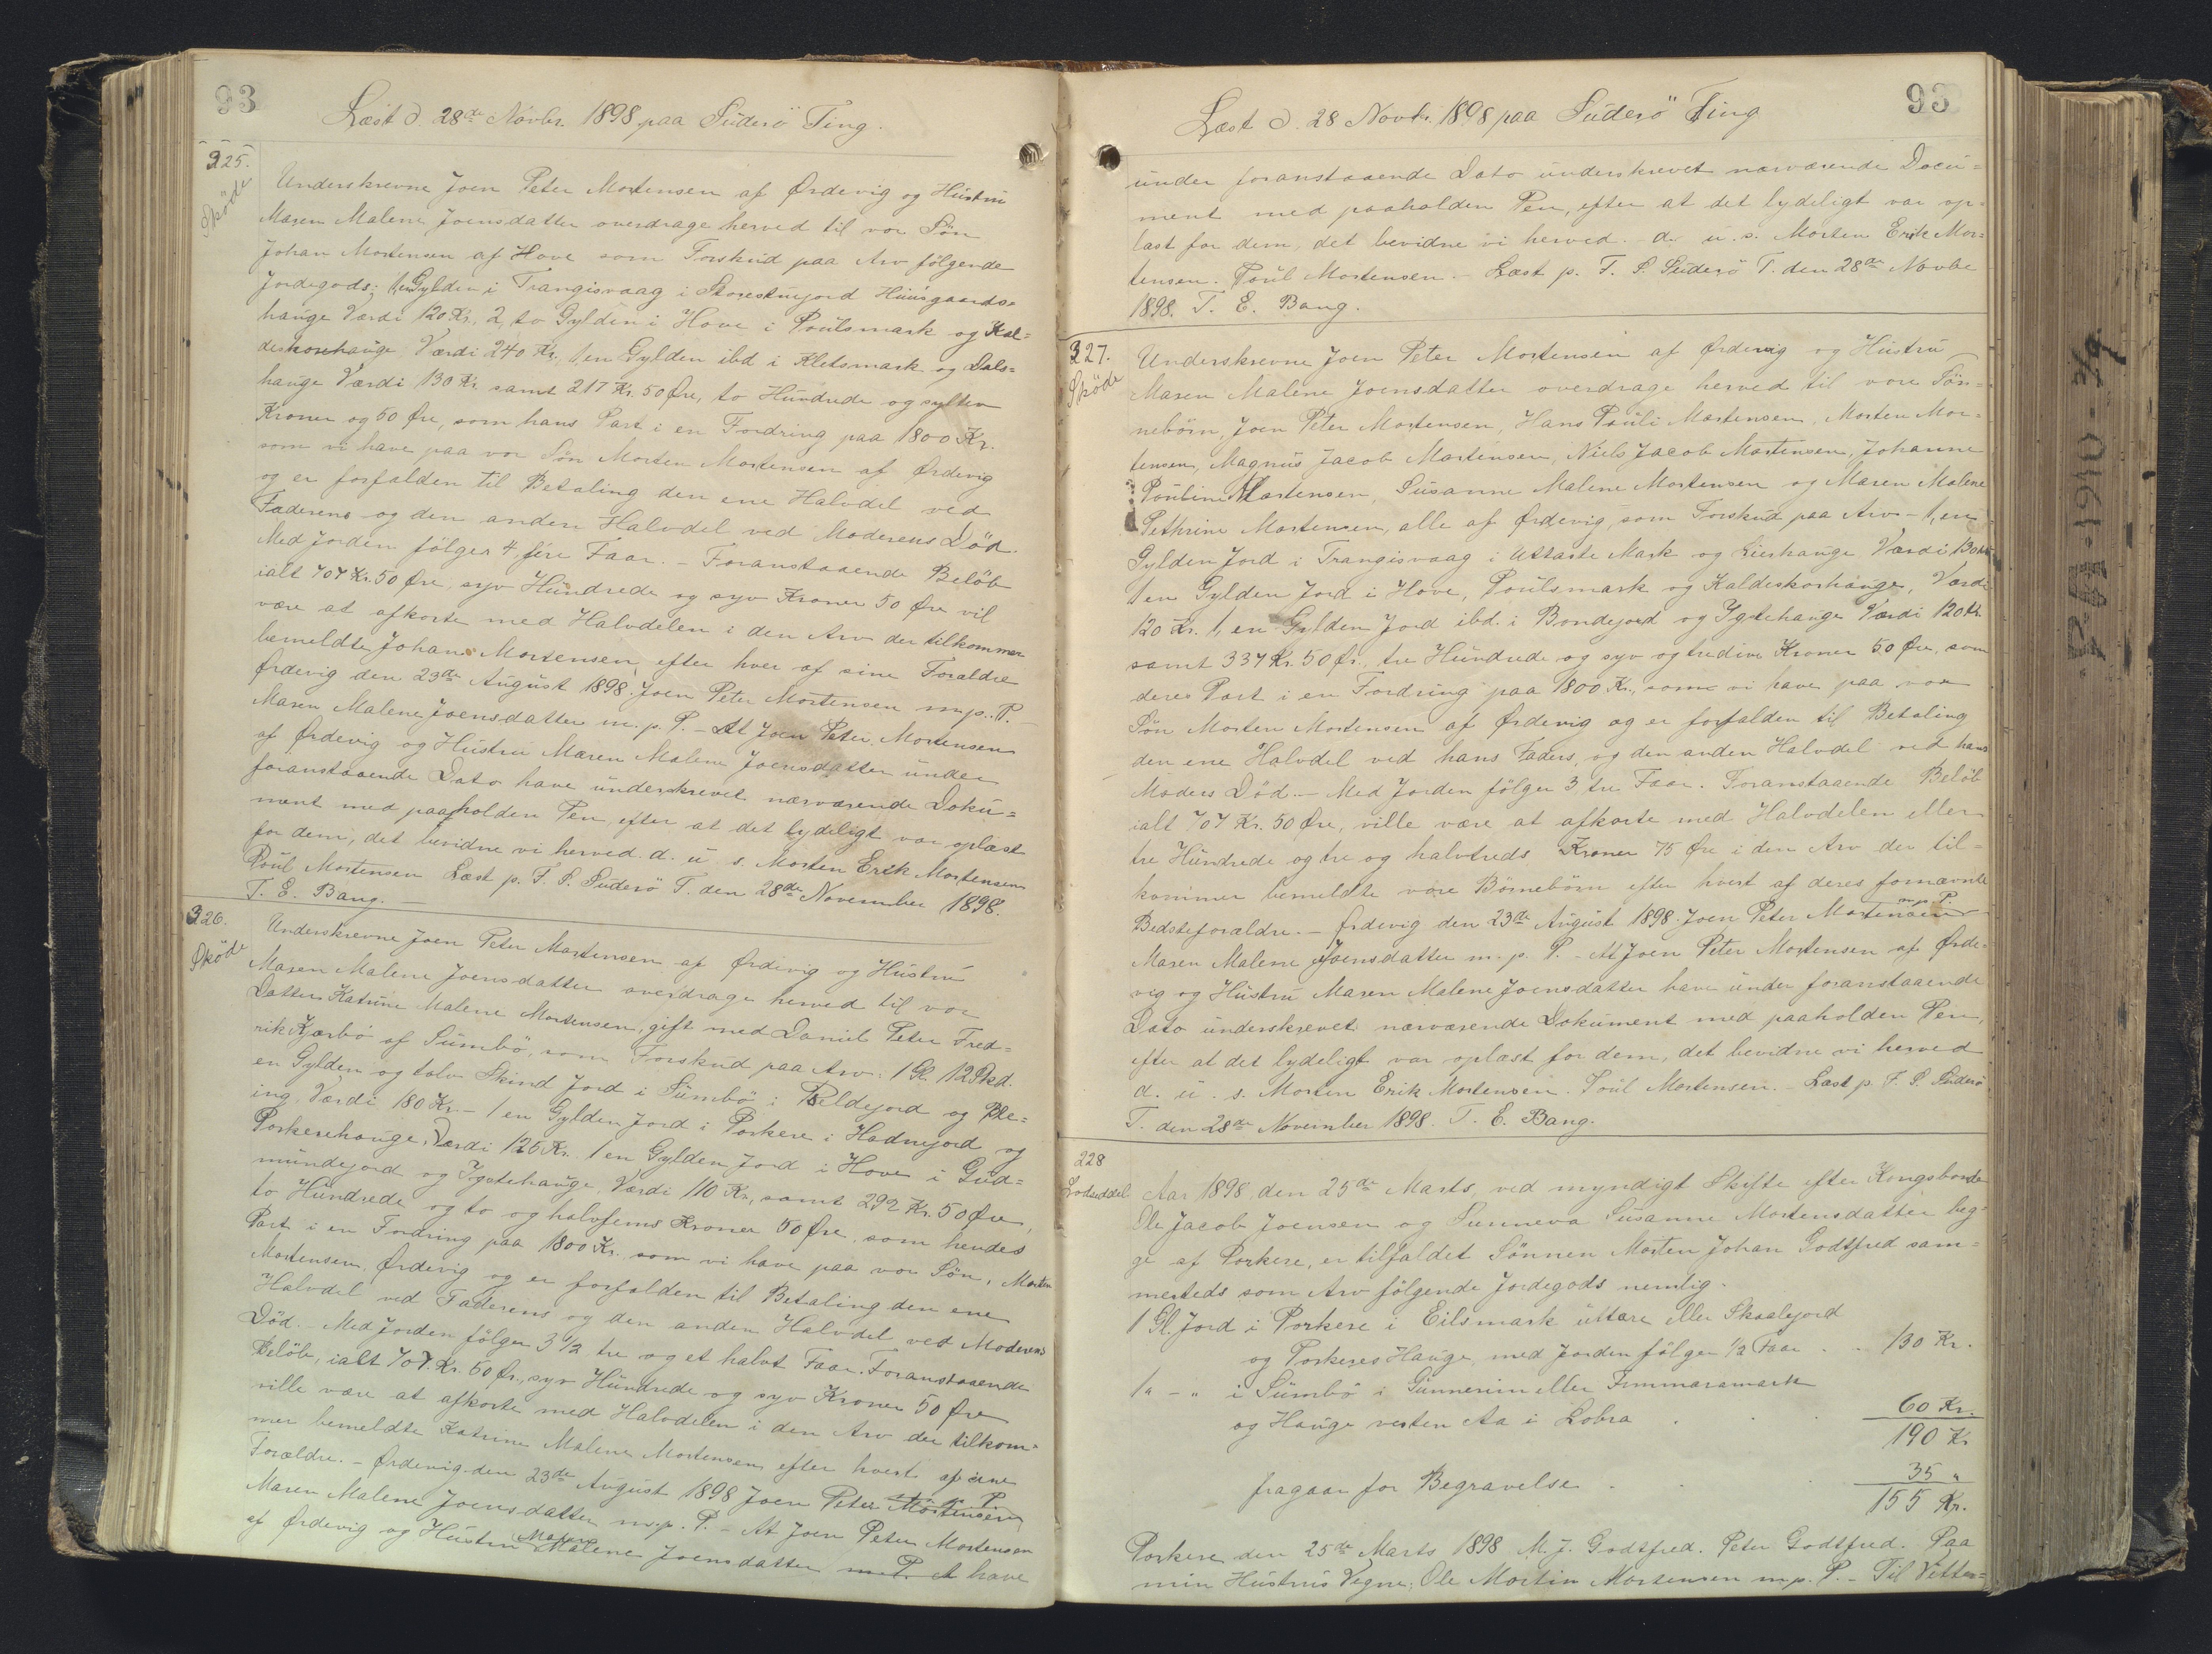 93
Læst d. 28de Novbr. 1898 paa Süderö Ting.
225.
Sköde
Underskrevne Joen Peter Mortensen af Ördevig og Hüstrü
Maren Malene Joensdatter overdrage herved til vor Sön
Johan Mortensen af Hove som Forskud paa Arv fölgende
Jordegods: 1, en Gylden i Trangisvaag i Storestuejord Hüüsgaards-
hauge Værdi 120 Kr, 2, to Gylden i Hove i Poülsmark og Kal-
deskorehauge Værdi 240 Kr, 1 en Gylden ibd i Kletsmark og Dals=
hauge Værdi 130 Kr. samt 217 Kr. 50 Øre, to Hündrede og sytten
Kroner og 50 Øre, som hans Part i en Fordring paa 1800 Kr.
som vi have paa vor Sön Morten Mortensen af Ördevig
og er forfalden til Betaling den ene Halvdel ved
Faderens og den anden Halvdel ved Moderens Död.
Med Jorden fölger 4, fire Faar. - Foranstaaende Belöb
ialt 707 Kr. 50 Øre, syv Hündrede og syv Kroner 50 Øre vil
være at afkorte med Halvdelen i den Arv der tilkommer
bemeldte Johan Mortensen efter hver af sine Forældre
Ördevig den 23de August 1898. Joen Peter Mortensen m.p. P. -
Maren Malene Joensdatter m. p. P. - At Joen Peter Mortensen
af Ördevig og Hüstrü Maren Malene Joensdatter ünder
foranstaaende Dato have ünderskrevet nærværende Dokü=
ment med paaholden Pen, efter at det lydeligt var oplæst
for dem, det bevidne vi herved. d. ü. s. Morten Erik Mortensen
Poül Mortensen Læst p. F. S. Süderö T. den 28de November 1898.
T. E. Bang. -
226.
Sköde
Underskrevne Joen Peter Mortensen af Ördevig og Hüstrü
Maren Malene Joensdatter overdrage herved til vor
Datter Katrine Malene Mortensen, gift med Daniel Peter Fred=
rik Kjærbö af Sümbö, som Forskud paa Arv: 1 Gl. 12 Skd.
en Gylden og tolv Skind Jord i Sümbö i Beldejord og Ble=
ing, Værdi 180 Kr. - 1 en Gylden Jord i Porkere i Hadnejord og
Porkerehauge, Værdi 125 Kr. 1 en Gylden Jord i Hove i Güd=
mündejord og Ygstehauge, Værdi 110 Kr, samt 292 Kr. 50 Øre,
to Hündrede og to og halvfems Kroner 50 Øre, som hendes
Part i en Fordring paa 1800 Kr. som vi have paa vor Sön, Morten
Mortensen, Ördevig og er forfalden til Betaling den ene
Halvdel ved Faderens og den anden Halvdel ved Moderens
Död. - Med Jorden fölger 3 1/2 tre og et halvt Faar. Foranstaaende
Belöb, ialt 707. Kr. 50 Ør., syv Hündrede og syv Kroner 50 Øre
ville være at afkorte med Halvdelen i den Arv der tilkom=
mer bemeldte Katrine Malene Mortensen efter hvert af sine
Forældre. - Ördevig den 23de August 1898 Joen Peter Mortensen m. p. P.
Maren Malene Joensdatter m.p. P. - At Joen Peter Mortensen
af Ördevig og Hüstrü Maren Malene Joensdatter m. P. A have
93
Læst d. 28 Novbr. 1898 paa Süderö Ting
ünder foranstaaende Dato ünderskrevet nærværende Docü=
ment med paaholden Pen, efter at det lydeligt var op=
læst for dem, det bevidne vi herved. - d. ü. s. Morten Erik Mor=
tensen. Poül Mortensen. - Læst p. F. S. Süderö T. den 28de Novbr
1898. T. E. Bang.
227.
Sköde
Underskrevne Joen Peter Mortensen af Ördevig og Hüstrü
Maren Malene Joensdatter overdrage herved til vore Sön=
nebörn, Joen Peter Mortensen, Hans Poüli Mortensen, Morten Mor=
tensen, Magnüs Jacob Mortensen, Niels Jacob Mortensen, Johanne
Poüline Mortensen, Süsanne Malene Mortensen og Maren Malene
Pethrine Mortensen, alle af Ördevig, som Forskud paa Arv - 1, en
Gylden Jord i Trangisvaag i Uttaste Mark og Lierhauge Værdi 130 Kr
1 en Gylden Jord i Hove, Poülsmark og Kaldeskorhauge, Værdi
120 Kr. 1, en Gylden Jord ibd. i Bondejord og Ygstehauge Værdi 120 Kr.
samt 337 Kr. 50 Ør., tre Hündrede og syv og tredive Kroner 50 Øre, som
deres Part i en Fordring paa 1800 Kr., som vi have paa vor
Sön Morten Mortensen af Ördevig og er forfalden til Betaling
den ene Halvdel ved hans Faders, og den anden Halvdel ved hans
Moders Död. - Med Jorden fölger 3 tre Faar. Foranstaaende Belöb
ialt 707 Kr. 50 Øre, ville være at afkorte med Halvdelen eller
tre Hündrede og tre og halvtreds Kroner 75 Øre i den Arv der til=
kommer bemeldte vore Börnebörn efter hvert af deres fornævnte
Bedsteforældre. - Ördevig den 23de August 1898. Joen Peter Mortensen m.p. P.
Maren Malene Joensdatter m. p. P. - At Joen Peter Mortensen af Örde=
vig og Hüstrü Maren Malene Joensdatter have ünder foranstaaende
Dato ünderskrevet nærværende Dokument med paaholden Pen,
efter at det lydeligt var oplæst for dem, det bevidne vi herved
d. ü. s. Morten Erik Mortensen. Poül Mortensen. - Læst p. F. S. Süderö
T. den 28de November 1898. T. E. Bang.
228
Lodseddel
Aar 1898, den 25de Marts, ved myndigt Skifte efter Kongsbonde
Ole Jacob Joensen og Sunneva Süsanne Mortensdatter beg=
ge af Porkere, er tilfaldet Sönnen Morten Johan Godtfred sam=
mesteds som Arv fölgende Jordegods nemlig.
1 Gl. Jord i Porkere i Eilsmark üttare eller Skaalejord
og Porkeres Hauge, med Jorden fölger 1/2 Faar . . 130 Kr.
1 " - " i Sümbö i Günnerim eller Frmmaramark
og Hauge vesten Aa i Lobra . . . 60 Kr.
190 Kr
fragaar for Begravelse . . . 35 "
155 Kr.
Porkere den 25de Marts 1898. M. J. Godtfred. Peter Godtfred. Paa
min Hüstrüs Vegne: Ole Mortin Mortensen m.p. P. - Til Vitter=